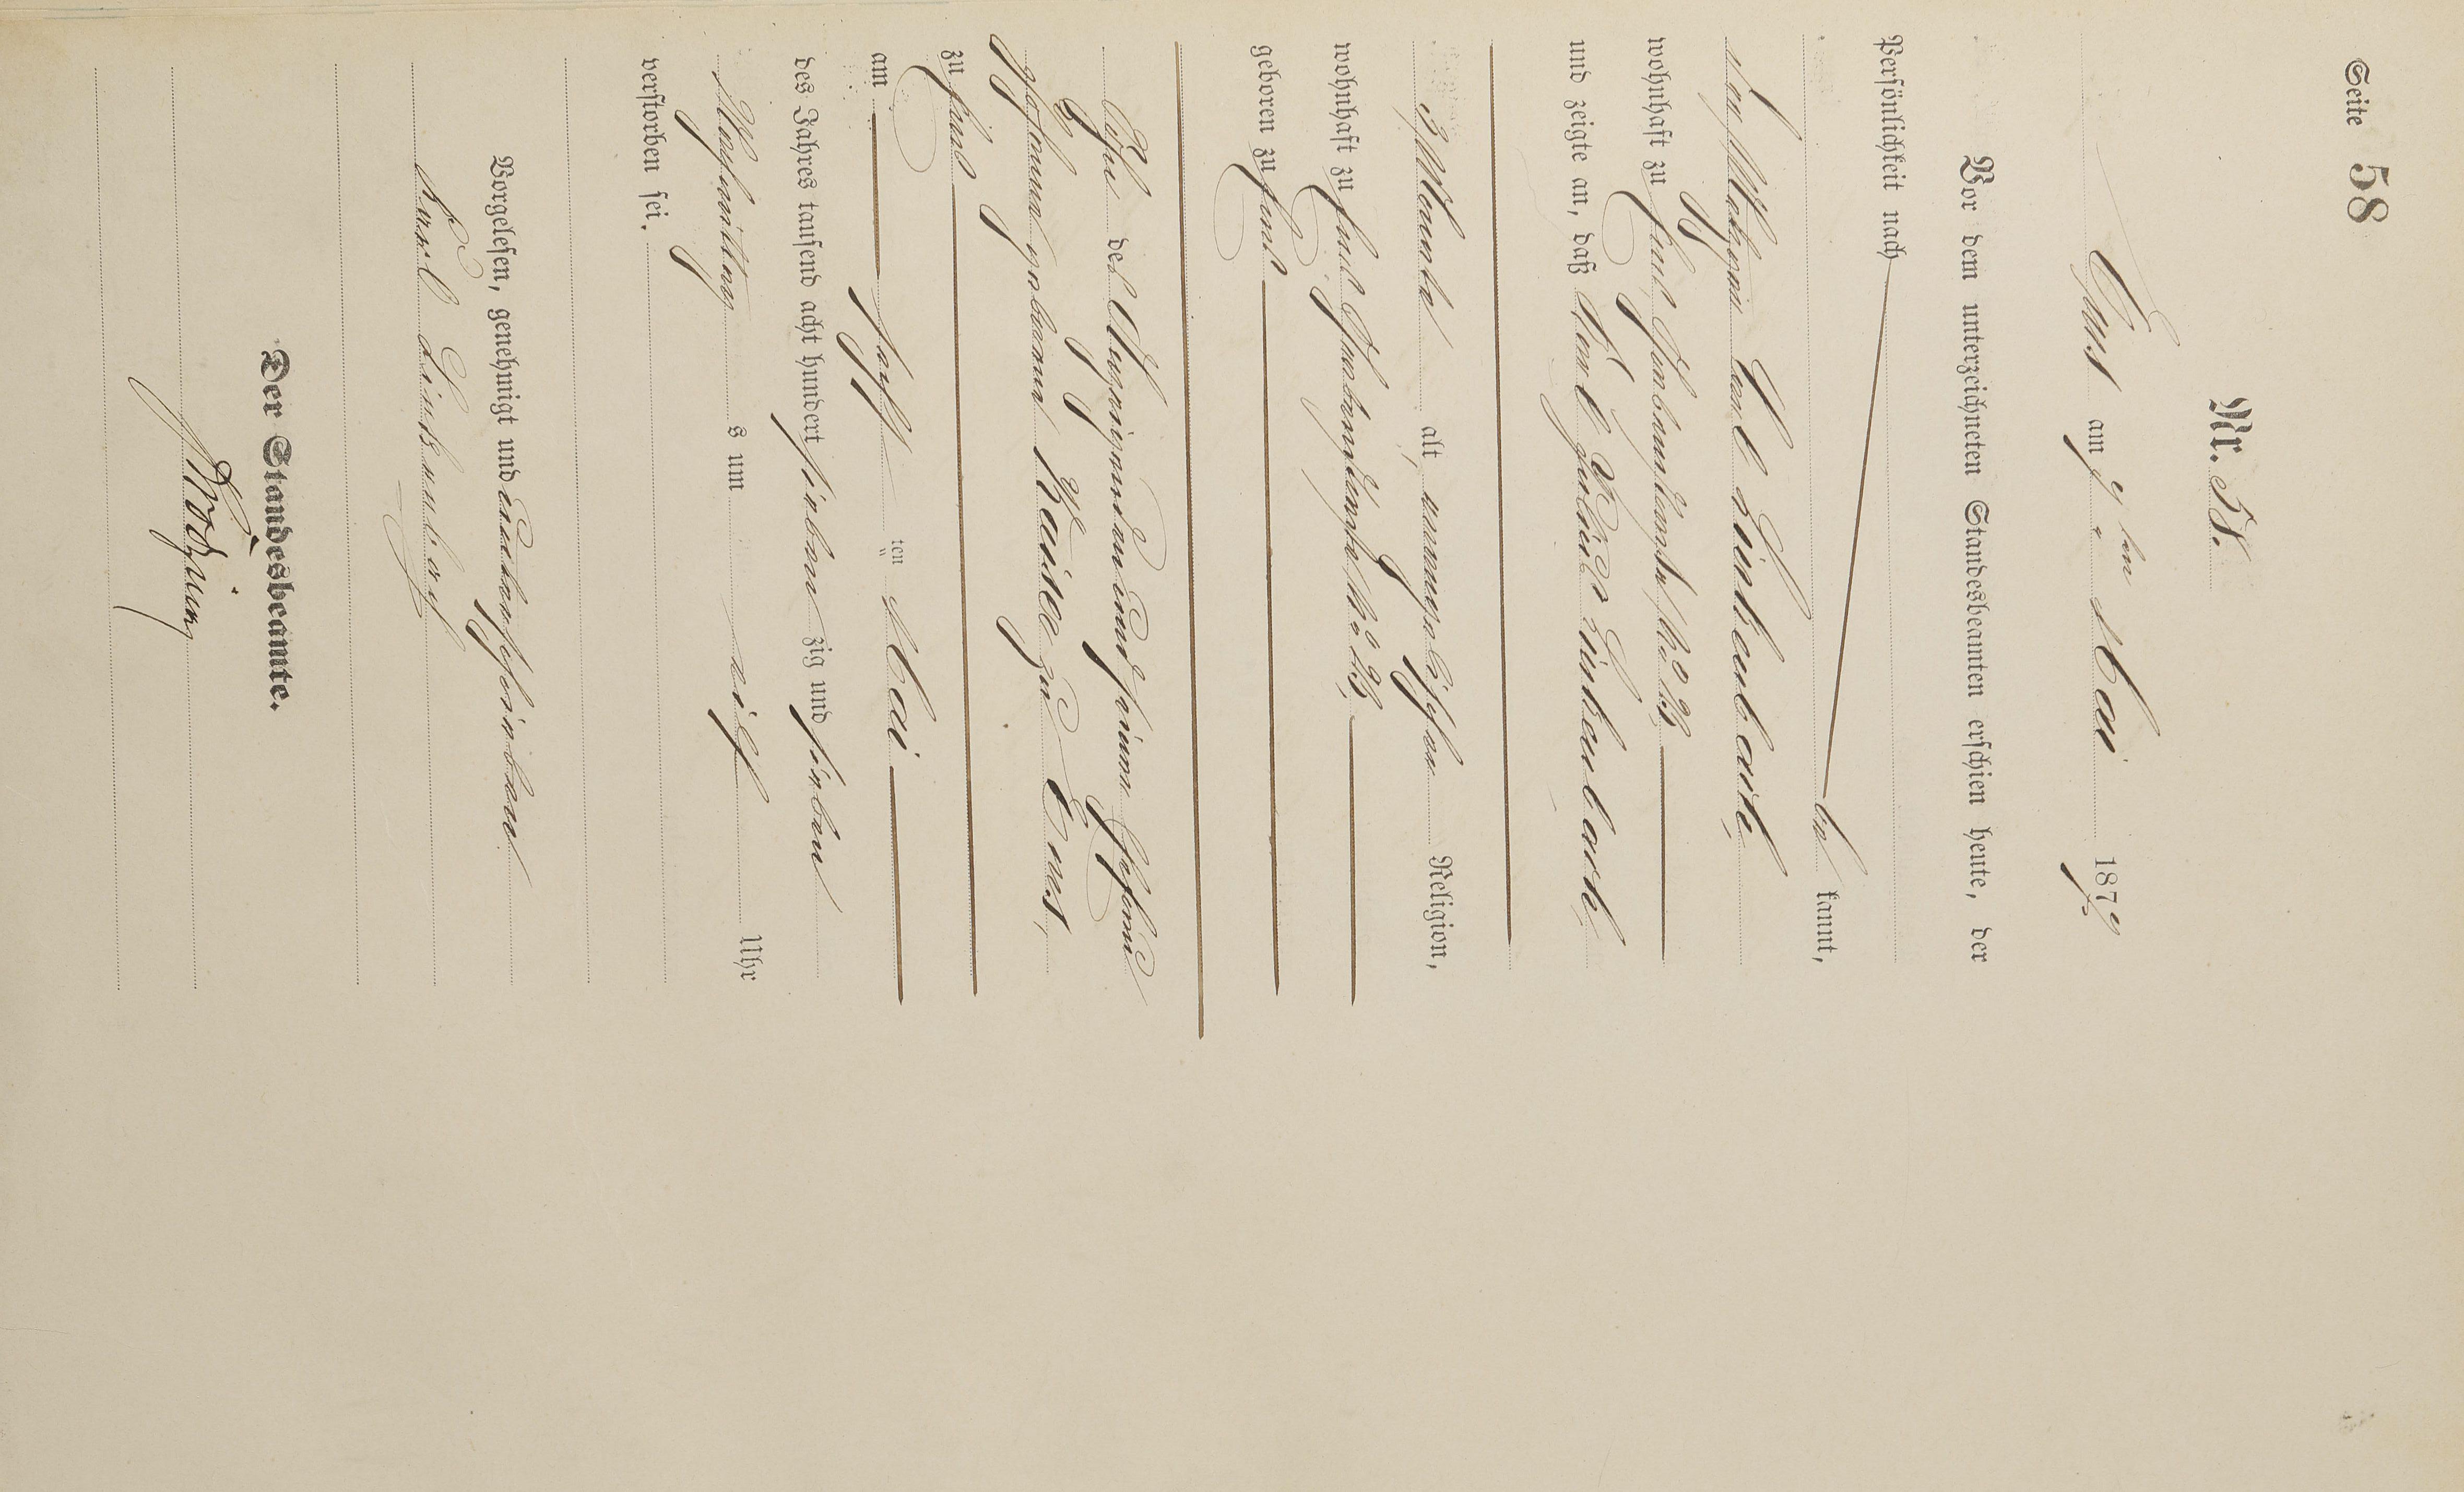 Seite 58
Nr. 58.
Ems am 9ten Mai 1879
Vor dem unterzeichneten Standesbeamten erschien heute, der
Persönlichkeit nach
be kannt,
der Metzger Carl Linkenbach,
wohnhaft zu Ems, No 25
und zeigte an, daß Carl Linkenbach,
3 Monate alt, evangelischer Religion,
wohnhaft zu Ems No 25,
geboren zu Ems
Sohn des Anzeigenden und seiner Ehefrau
geborenen Kaiser zu Ems,
zu Ems
am ten Mai
des Jahres tausend acht hundert sieben zig und
Nachmittags um Uhr
verstorben sei.
Vorgelesen, genehmigt und unterschrieben
Karl Linkenbach
Der Standesbeamte.